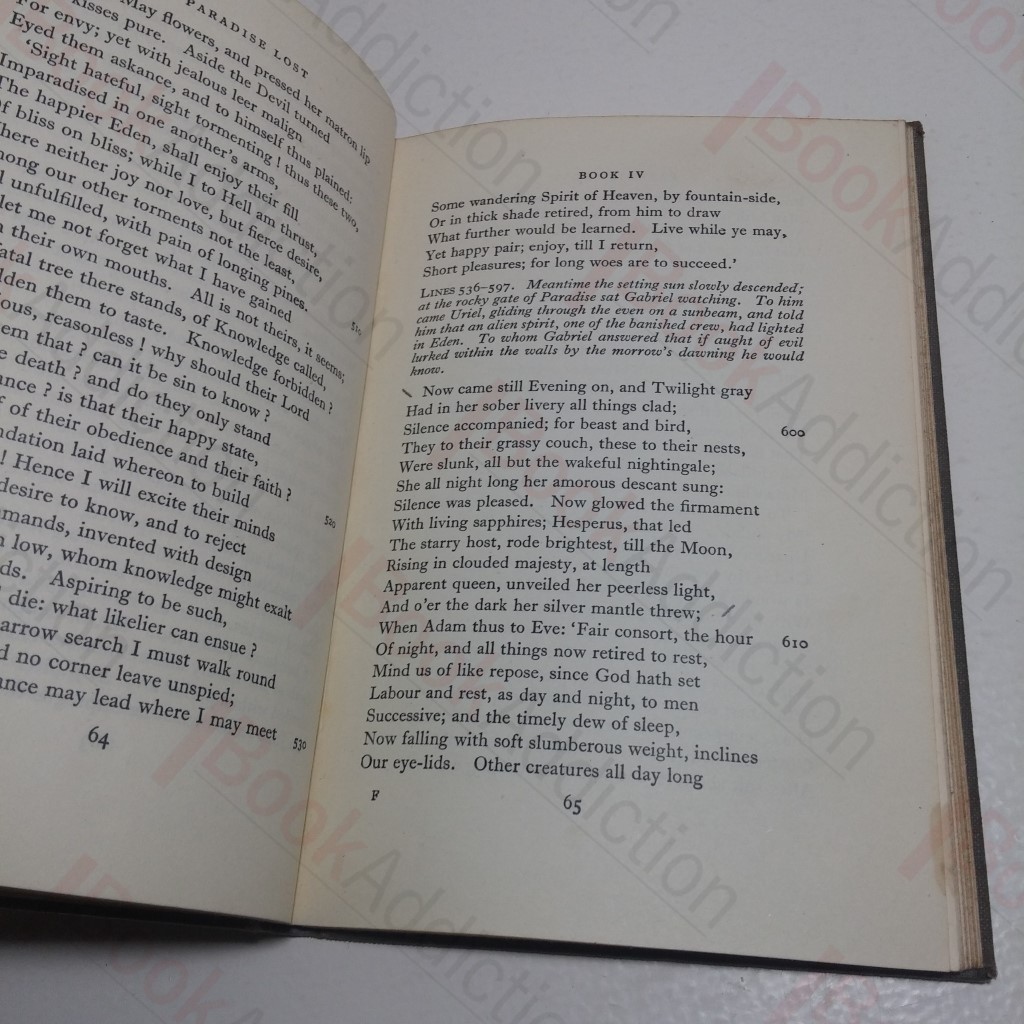 PARADISE LOST
May flowers, and pressed her matron lip
kisses pure. Aside the Devil turned
For envy; yet with jealous leer malign
Eyed them askance, and to himself thus plained:
'Sight hateful, sight tormenting! thus these two,
Imparadised in one another's arms,
The happier Eden, shall enjoy their fill
Of bliss on bliss; while I to Hell am thrust,
Where neither joy nor love, but fierce desire,
Among our other torments not the least,
unfulfilled, with pain of longing pines.
let me not forget what I have gained
their own mouths. All is not theirs, it seems;
fatal tree there stands, of Knowledge called, 510
them to taste. Knowledge forbidden?
reasonless! why should their Lord
them that? can it be sin to know?
death? and do they only stand
is that their happy state,
of their obedience and their faith?
laid whereon to build
! Hence I will excite their minds
desire to know, and to reject 520
invented with design
low, whom knowledge might exalt
Aspiring to be such,
die: what likelier can ensue?
search I must walk round
no corner leave unspied;
may lead where I may meet 530
64
BOOK IV
Some wandering Spirit of Heaven, by fountain-side,
Or in thick shade retired, from him to draw
What further would be learned. Live while ye may,
Yet happy pair; enjoy, till I return,
Short pleasures; for long woes are to succeed.'
LINES 536–597. Meantime the setting sun slowly descended;
at the rocky gate of Paradise sat Gabriel watching. To him
came Uriel, gliding through the even on a sunbeam, and told
him that an alien spirit, one of the banished crew, had lighted
in Eden. To whom Gabriel answered that if aught of evil
lurked within the walls by the morrow's dawning he would
know.
Now came still Evening on, and Twilight gray
Had in her sober livery all things clad;
Silence accompanied; for beast and bird, 600
They to their grassy couch, these to their nests,
Were slunk, all but the wakeful nightingale;
She all night long her amorous descant sung:
Silence was pleased. Now glowed the firmament
With living sapphires; Hesperus, that led
The starry host, rode brightest, till the Moon,
Rising in clouded majesty, at length
Apparent queen, unveiled her peerless light,
And o'er the dark her silver mantle threw;
When Adam thus to Eve: 'Fair consort, the hour 610
Of night, and all things now retired to rest,
Mind us of like repose, since God hath set
Labour and rest, as day and night, to men
Successive; and the timely dew of sleep,
Now falling with soft slumberous weight, inclines
Our eye-lids. Other creatures all day long
F
65
BookAddiction